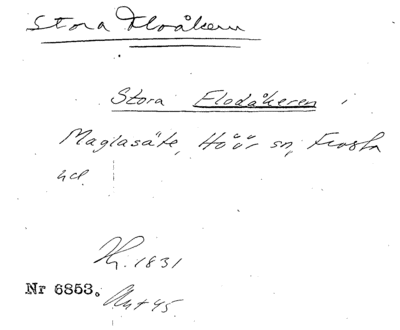 Stora Floåkern
Stora Flodåkeren i
Maglasäte, Höör sn, Frosta
hd.
1831
Nr 6853.
Akt 45.